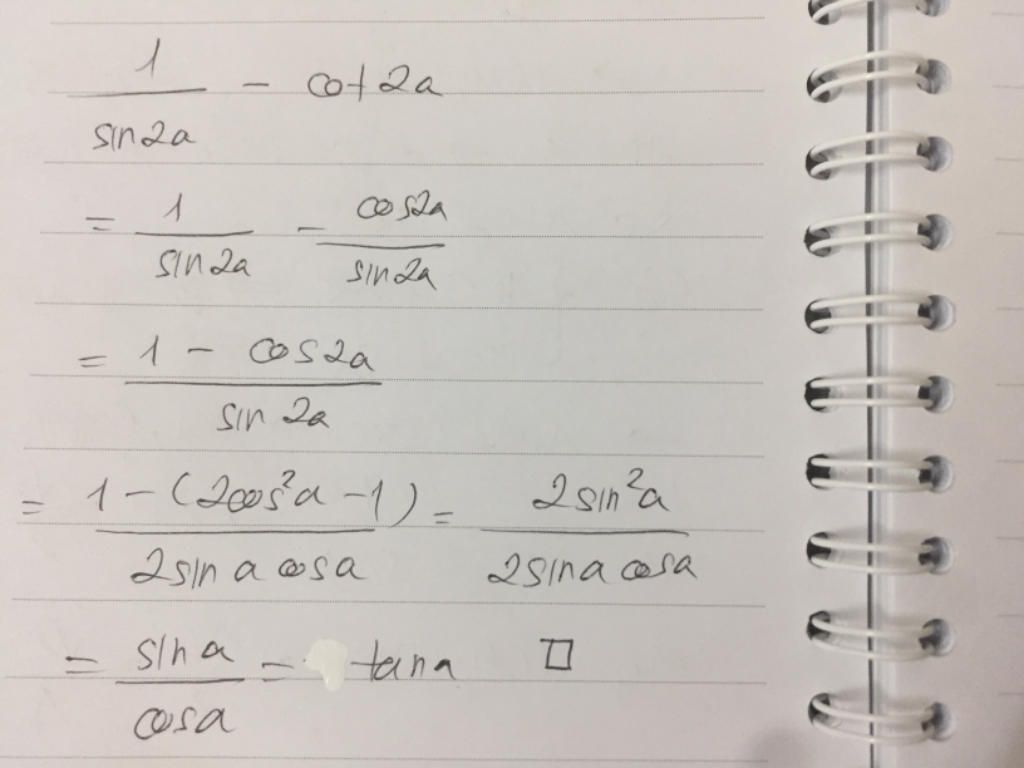 1/sin2a - cot2a
= 1/sin2a - cos2a/sin2a
= (1 - cos2a)/sin 2a
= (1 - (2cos²a - 1))/(2sin a cosa) = 2sin²a/(2sina cosa)
= sin a/cosa = tana □